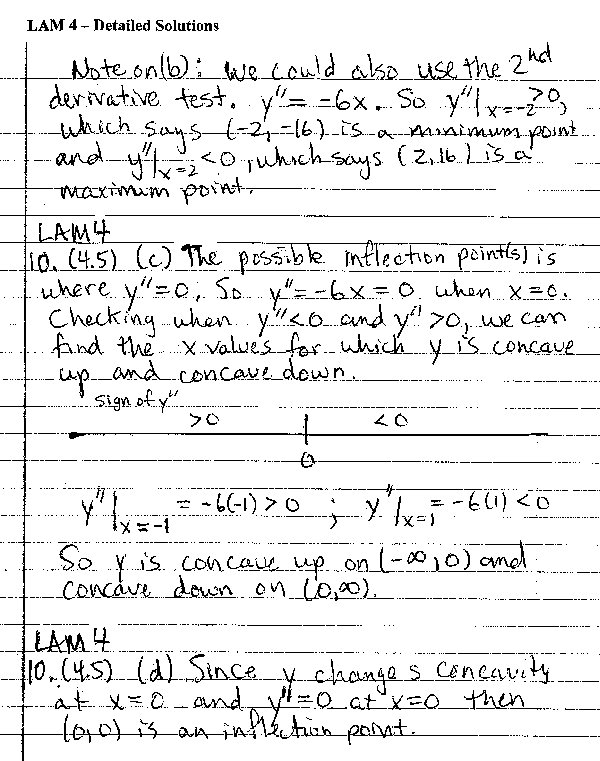 LAM 4 – Detailed Solutions
Note on (b): We could also use the 2nd
derivative test. y'' = -6x. So y''|x=-2 > 0,
which says (-2, -16) is a minimum point
and y''|x=2 < 0, which says (2, 16) is a
maximum point.
LAM 4
10. (4.5) (c) The possible inflection point(s) is
where y'' = 0. So y'' = -6x = 0 when x = 0.
Checking when y'' < 0 and y'' > 0, we can
find the x values for which y is concave
up and concave down.
sign of y''
> 0 < 0
0
y''|x=-1 = -6(-1) > 0 ; y''|x=1 = -6(1) < 0
So y is concave up on (-∞, 0) and
concave down on (0, ∞).
LAM 4
10. (4.5) (d) Since y changes concavity
at x = 0 and y'' = 0 at x = 0 then
(0, 0) is an inflection point.